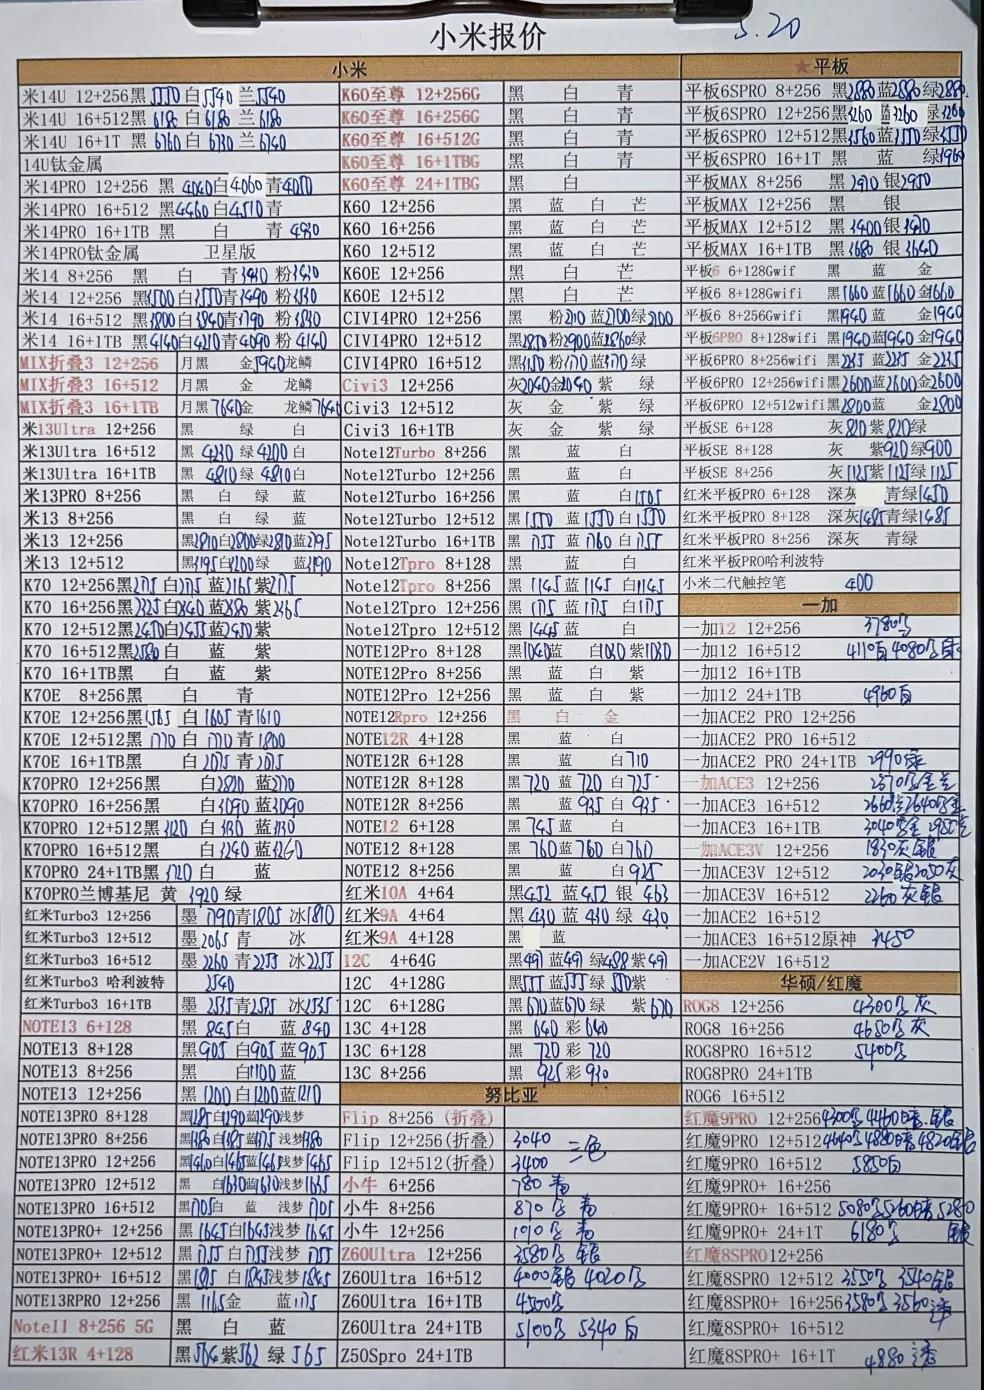 小米报价
5.20
小米
米14U 12+256黑5550白5540 兰5540
米14U 16+512黑6180 白6180 兰6180
米14U 16+1T 黑6760白6730 兰6740
14U钛金属
米14PRO 12+256 黑 4040白4060青4050
米14PRO 16+512 黑4460白4510青
米14PRO 16+1TB 黑 白 青4930
米14PRO钛金属 卫星版
米14 8+256 黑 白 青3430 粉3430
米14 12+256 黑3500白3550青3490 粉3530
米14 16+512 黑3800白3840青3790 粉3830
米14 16+1TB 黑4140白4210青4090 粉4140
MIX折叠3 12+256 月黑 金5940龙鳞
MIX折叠3 16+512 月黑 金 龙鳞
MIX折叠3 16+1TB 月黑7640金 龙鳞7640
米13Ultra 12+256 黑 绿 白
米13Ultra 16+512 黑 4230 绿4200白
米13Ultra 16+1TB 黑 4810绿 4810白
米13PRO 8+256 黑 白 绿 蓝
米13 8+256 黑 白 绿 蓝
米13 12+256 黑2810白2800绿2810蓝2795
米13 12+512 黑3195白3200绿 蓝3190
K70 12+256黑2175白2175 蓝2165紫2175
K70 16+256黑2325白2340 蓝2380 紫2365
K70 12+512黑2450白2455蓝2450紫
K70 16+512黑2580白 蓝 紫
K70 16+1TB黑 白 蓝 紫
K70E 8+256黑 白 青
K70E 12+256黑1565 白1605青1610
K70E 12+512黑1770白1770青1800
K70E 16+1TB黑 白2075青2075
K70PRO 12+256黑 白2820 蓝2770
K70PRO 16+256黑 白3090蓝3090
K70PRO 12+512黑3120 白3130 蓝3130
K70PRO 16+512黑 白3240蓝3260
K70PRO 24+1TB黑3720白 蓝
K70PRO兰博基尼 黄 3920绿
红米Turbo3 12+256 墨1790青1805 冰1810
红米Turbo3 12+512 墨2065青 冰
红米Turbo3 16+512 墨2260青2255 冰2255
红米Turbo3 哈利波特 2540
红米Turbo3 16+1TB 墨2535青2535 冰2535
NOTE13 6+128 黑 845白 蓝840
NOTE13 8+128 黑905 白905蓝905
NOTE13 8+256 黑 白1100蓝
NOTE13 12+256 黑1200白1200蓝1210
NOTE13PRO 8+128 黑1285白1290蓝1290浅梦
NOTE13PRO 8+256 黑1380白1385蓝1375浅梦1380
NOTE13PRO 12+256 黑1460白1465蓝1465浅梦1465
NOTE13PRO 12+512 黑 白1630蓝1630浅梦1635
NOTE13PRO 16+512 黑1705白 蓝 浅梦1705
NOTE13PRO+ 12+256 黑1645白1645浅梦1645
NOTE13PRO+ 12+512 黑1755白1755浅梦1755
NOTE13PRO+ 16+512 黑1815白1845浅梦1845
NOTE13RPRO 12+256 黑 1165金 蓝1175
Note11 8+256 5G 黑 白 蓝
红米13R 4+128 黑564紫562 绿565
K60至尊 12+256G 黑 白 青
K60至尊 16+256G 黑 白 青
K60至尊 16+512G 黑 白 青
K60至尊 16+1TBG 黑 白 青
K60至尊 24+1TBG 黑 白
K60 12+256 黑 蓝 白 芒
K60 16+256 黑 蓝 白 芒
K60 12+512 黑 蓝 白 芒
K60E 12+256 黑 白 芒
K60E 12+512 黑 白 芒
CIVI4PRO 12+256 黑 粉2110蓝2100绿2100
CIVI4PRO 12+512 黑2870粉2900蓝2860绿
CIVI4PRO 16+512 黑3150粉3170蓝3170绿
Civi3 12+256 灰2040金2040紫 绿
Civi3 12+512 灰 金 紫 绿
Civi3 16+1TB 灰 金 紫 绿
Note12Turbo 8+256 黑 蓝 白
Note12Turbo 12+256 黑 蓝 白
Note12Turbo 16+256 黑 蓝 白1505
Note12Turbo 12+512 黑1550 蓝1550白1550
Note12Turbo 16+1TB 黑1755 蓝1760白1755
Note12Tpro 8+128 黑 蓝 白
Note12Tpro 8+256 黑1145蓝1145 白1145
Note12Tpro 12+256 黑1175蓝1175 白1175
Note12Tpro 12+512 黑1445蓝 白
NOTE12Pro 8+128 黑1040蓝 白1030紫1030
NOTE12Pro 8+256 黑 蓝 白 紫
NOTE12Pro 12+256 黑 蓝 白 紫
NOTE12Rpro 12+256 黑 白 金
NOTE12R 4+128 黑 蓝 白
NOTE12R 6+128 黑 蓝 白710
NOTE12R 8+128 黑720蓝720白725
NOTE12R 8+256 黑 蓝935白935
NOTE12 6+128 黑745蓝 白
NOTE12 8+128 黑760蓝760白760
NOTE12 8+256 黑 蓝 白925
红米10A 4+64 黑452蓝452银463
红米9A 4+64 黑430蓝430绿430
红米9A 4+128 黑 蓝
12C 4+64G 黑491蓝491绿488紫491
12C 4+128G 黑555蓝555绿550紫
12C 6+128G 黑670蓝670绿 紫670
13C 4+128 黑 640彩640
13C 6+128 黑 720彩720
13C 8+256 黑 925彩930
努比亚
Flip 8+256 (折叠)
Flip 12+256(折叠) 3040 三色
Flip 12+512(折叠) 3400
小牛 6+256 780 青
小牛 8+256 870 青
小牛 12+256 1010 青
Z60Ultra 12+256 3580 银
Z60Ultra 16+512 4000银4020
Z60Ultra 16+1TB 4500
Z60Ultra 24+1TB 5100 5340
Z50Spro 24+1TB
★平板
平板6SPRO 8+256 黑2880蓝2880绿2880
平板6SPRO 12+256黑3260 蓝3260 绿3260
平板6SPRO 12+512黑3560蓝3550绿3550
平板6SPRO 16+1T 黑 蓝 绿3960
平板MAX 8+256 黑2910银2950
平板MAX 12+256 黑 银
平板MAX 12+512 黑3400银3420
平板MAX 16+1TB 黑3680银3640
平板6 6+128Gwif 黑 蓝 金
平板6 8+128Gwifi 黑1660蓝1660金1660
平板6 8+256Gwifi 黑1940蓝 金1940
平板6PRO 8+128wifi 黑1940蓝1940金1940
平板6PRO 8+256wifi 黑2235蓝2235金2235
平板6PRO 12+256wifi黑2600蓝2600金2600
平板6PRO 12+512wifi黑2800蓝 金2800
平板SE 6+128 灰820紫820绿
平板SE 8+128 灰 紫920绿900
平板SE 8+256 灰1125紫1125绿1125
红米平板PRO 6+128 深灰 青绿1450
红米平板PRO 8+128 深灰1485青绿1485
红米平板PRO 8+256 深灰 青绿
红米平板PRO哈利波特
小米二代触控笔 400
一加
一加12 12+256 3780
一加12 16+512 4110白4080
一加12 16+1TB
一加12 24+1TB 4960白
一加ACE2 PRO 12+256
一加ACE2 PRO 16+512
一加ACE2 PRO 24+1TB 2990
一加ACE3 12+256 2370
一加ACE3 16+512 2660 2640
一加ACE3 16+1TB 3040
一加ACE3V 12+256 1830灰银
一加ACE3V 12+512 2030银2050灰
一加ACE3V 16+512 2260灰银
一加ACE2 16+512
一加ACE3 16+512原神 3450
一加ACE2V 16+512
华硕/红魔
ROG8 12+256 4300 灰
ROG8 16+256 4650 灰
ROG8PRO 16+512 5400
ROG8PRO 24+1TB
ROG6 16+512
红魔9PRO 12+256 4300 4460 银
红魔9PRO 12+512 4640 4880 4820银
红魔9PRO 16+512 5850白
红魔9PRO+ 16+256
红魔9PRO+ 16+512 5080 5260 5280
红魔9PRO+ 24+1T 6180 银
红魔8SPRO12+256
红魔8SPRO 12+512 3550 3540银
红魔8SPRO+ 16+256 3580 3560透
红魔8SPRO+ 16+512
红魔8SPRO+ 16+1T 4880 透